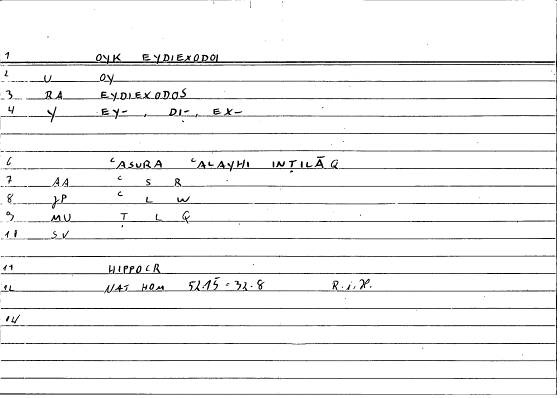 1 OYK EYDIEXODOI
2 U OY
3 RA EYDIEXODOS
4 Y EY- , DI-, EX-
6 ʿASURA ʿALAYHI INṬILĀQ
7 AA ʿ S R
8 JP ʿ L W
9 MU Ṭ L Q
10 SV
11 HIPPOCR
12 NAT HOM 52.15 = 32.8 R.i.H.
14